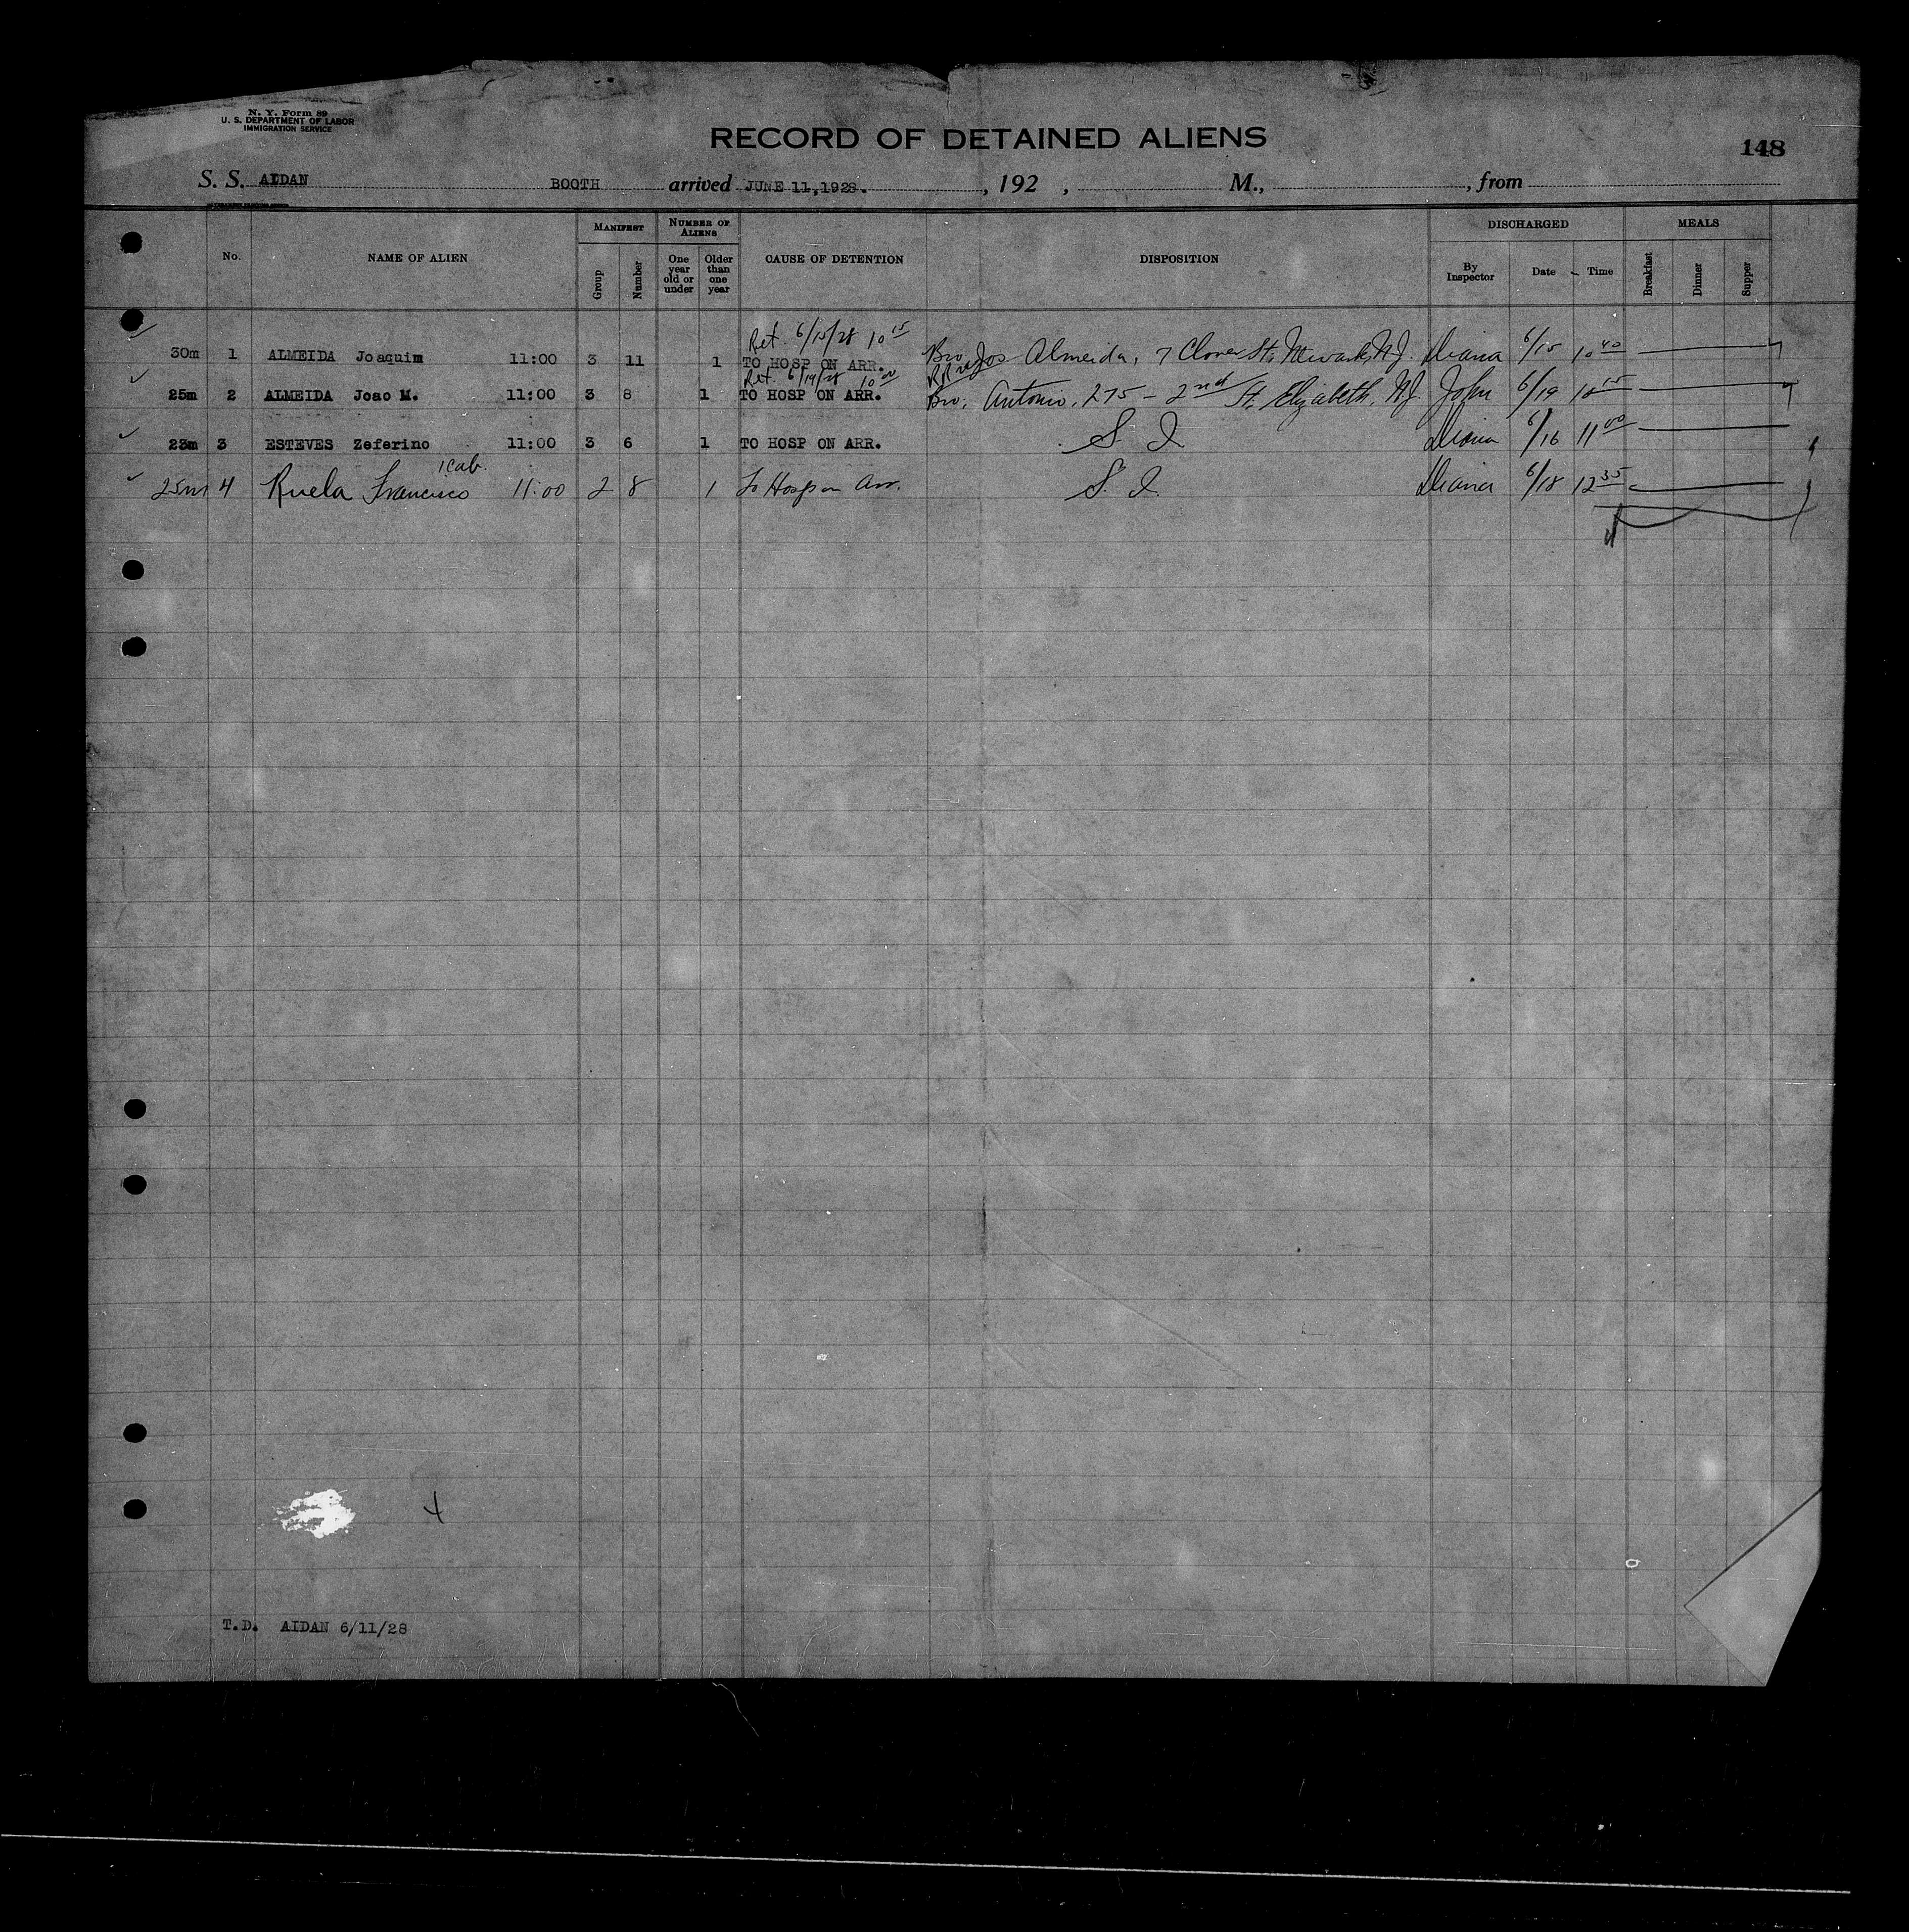 N. Y. Form 89
U. S. DEPARTMENT OF LABOR
IMMIGRATION SERVICE
RECORD OF DETAINED ALIENS
148
S. S. AIDAN BOOTH arrived JUNE 11, 1928. , 192 , M., , from
No. NAME OF ALIEN MANIFEST Group Number NUMBER OF ALIENS One year old or under Older than one year CAUSE OF DETENTION DISPOSITION DISCHARGED By Inspector Date Time MEALS Breakfast Dinner Supper
Ret. 6/15/28 10 15
30m 1 ALMEIDA Joaquim 11:00 3 11 1 TO HOSP ON ARR. Bro. Jos Almeida, 7 Clover St. Newark, N.J. Diana 6/15 10 40
Ret. 6/19/28 10 00 RR
25m 2 ALMEIDA Joao M. 11:00 3 8 1 TO HOSP ON ARR. Bro. Antonio, 275 - 2nd St. Elizabeth, N.J. John 6/19 10 15
23m 3 ESTEVES Zeferino 11:00 3 6 1 TO HOSP ON ARR. S. I. Diana 6/16 11 00
1 cab.
25m 4 Ruela Francisco 11:00 2 8 1 To Hosp on Arr. S. I. Diana 6/18 12 35
4
T.D. AIDAN 6/11/28